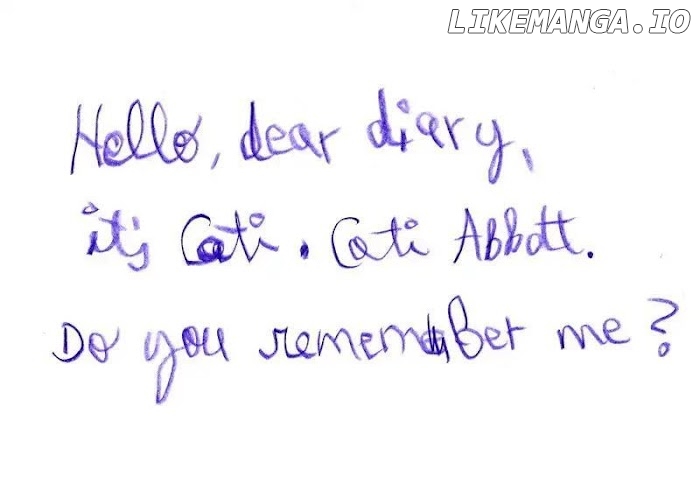 LIKEMANGA.IO
Hello, dear diary,
it's Cati. Cati Abbott.
Do you remember me?